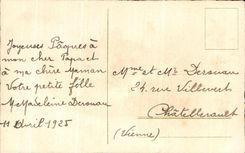 Joyeuses Pâques à
mon cher Papa et
à ma chère Maman
Votre petite folle
M. Madeleine Derouau
11 Avril 1925
Mme et Mr Derouau
24 rue Villevert
Châtellerault
(Vienne)